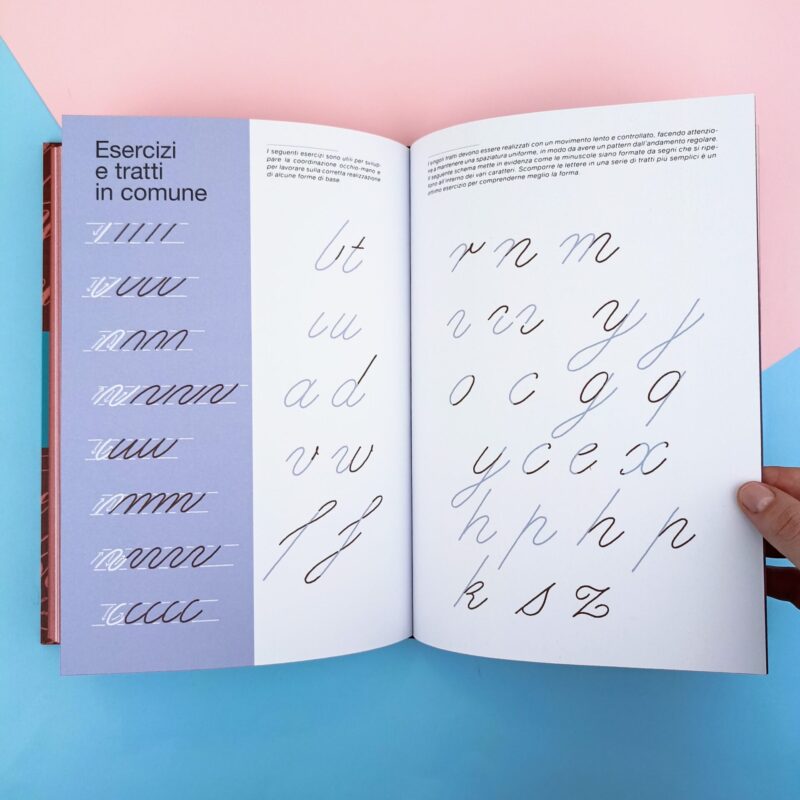 Esercizi
e tratti
in comune
I seguenti esercizi sono utili per svilup-
pare la coordinazione occhio-mano e
per lavorare sulla corretta realizzazione
di alcune forme di base
l t
ı u
a d
v w
I singoli tratti devono essere realizzati con un movimento lento e controllato, facendo attenzio-
ne a mantenere una spaziatura uniforme, in modo da avere un pattern dall'andamento regolare.
Il seguente schema mette in evidenza come le minuscole siano formate da segni che si ripe-
tono all'interno dei vari caratteri. Scomporre le lettere in una serie di tratti più semplici è un
ottimo esercizio per comprenderne meglio la forma
r n m
o c g q
y c e x
h p h p
k s z